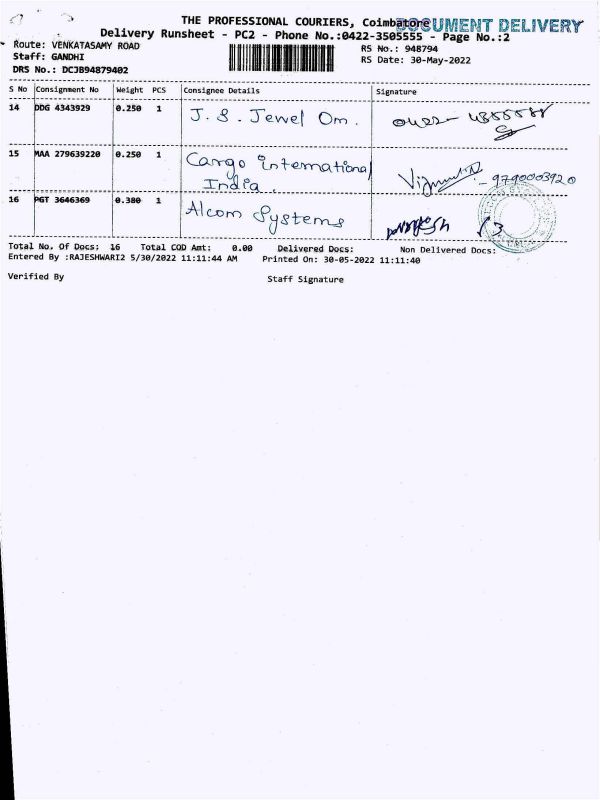 THE PROFESSIONAL COURIERS, Coimbatore DOCUMENT DELIVERY
Delivery Runsheet - PC2 - Phone No.:0422-3505555 - Page No.:2
Route: VENKATASAMY ROAD RS No.: 948794
Staff: GANDHI RS Date: 30-May-2022
DRS No.: DCJB94879402
S No Consignment No Weight PCS Consignee Details Signature
14 DDG 4343929 0.250 1 J. S. Jewel Om.
15 MAA 279639220 0.250 1 Cargo international
India. 9790003920
16 PGT 3646369 0.380 1 Alcom Systems
Total No. Of Docs: 16 Total COD Amt: 0.00 Delivered Docs: Non Delivered Docs:
Entered By :RAJESHWARI2 5/30/2022 11:11:44 AM Printed On: 30-05-2022 11:11:40
Verified By Staff Signature